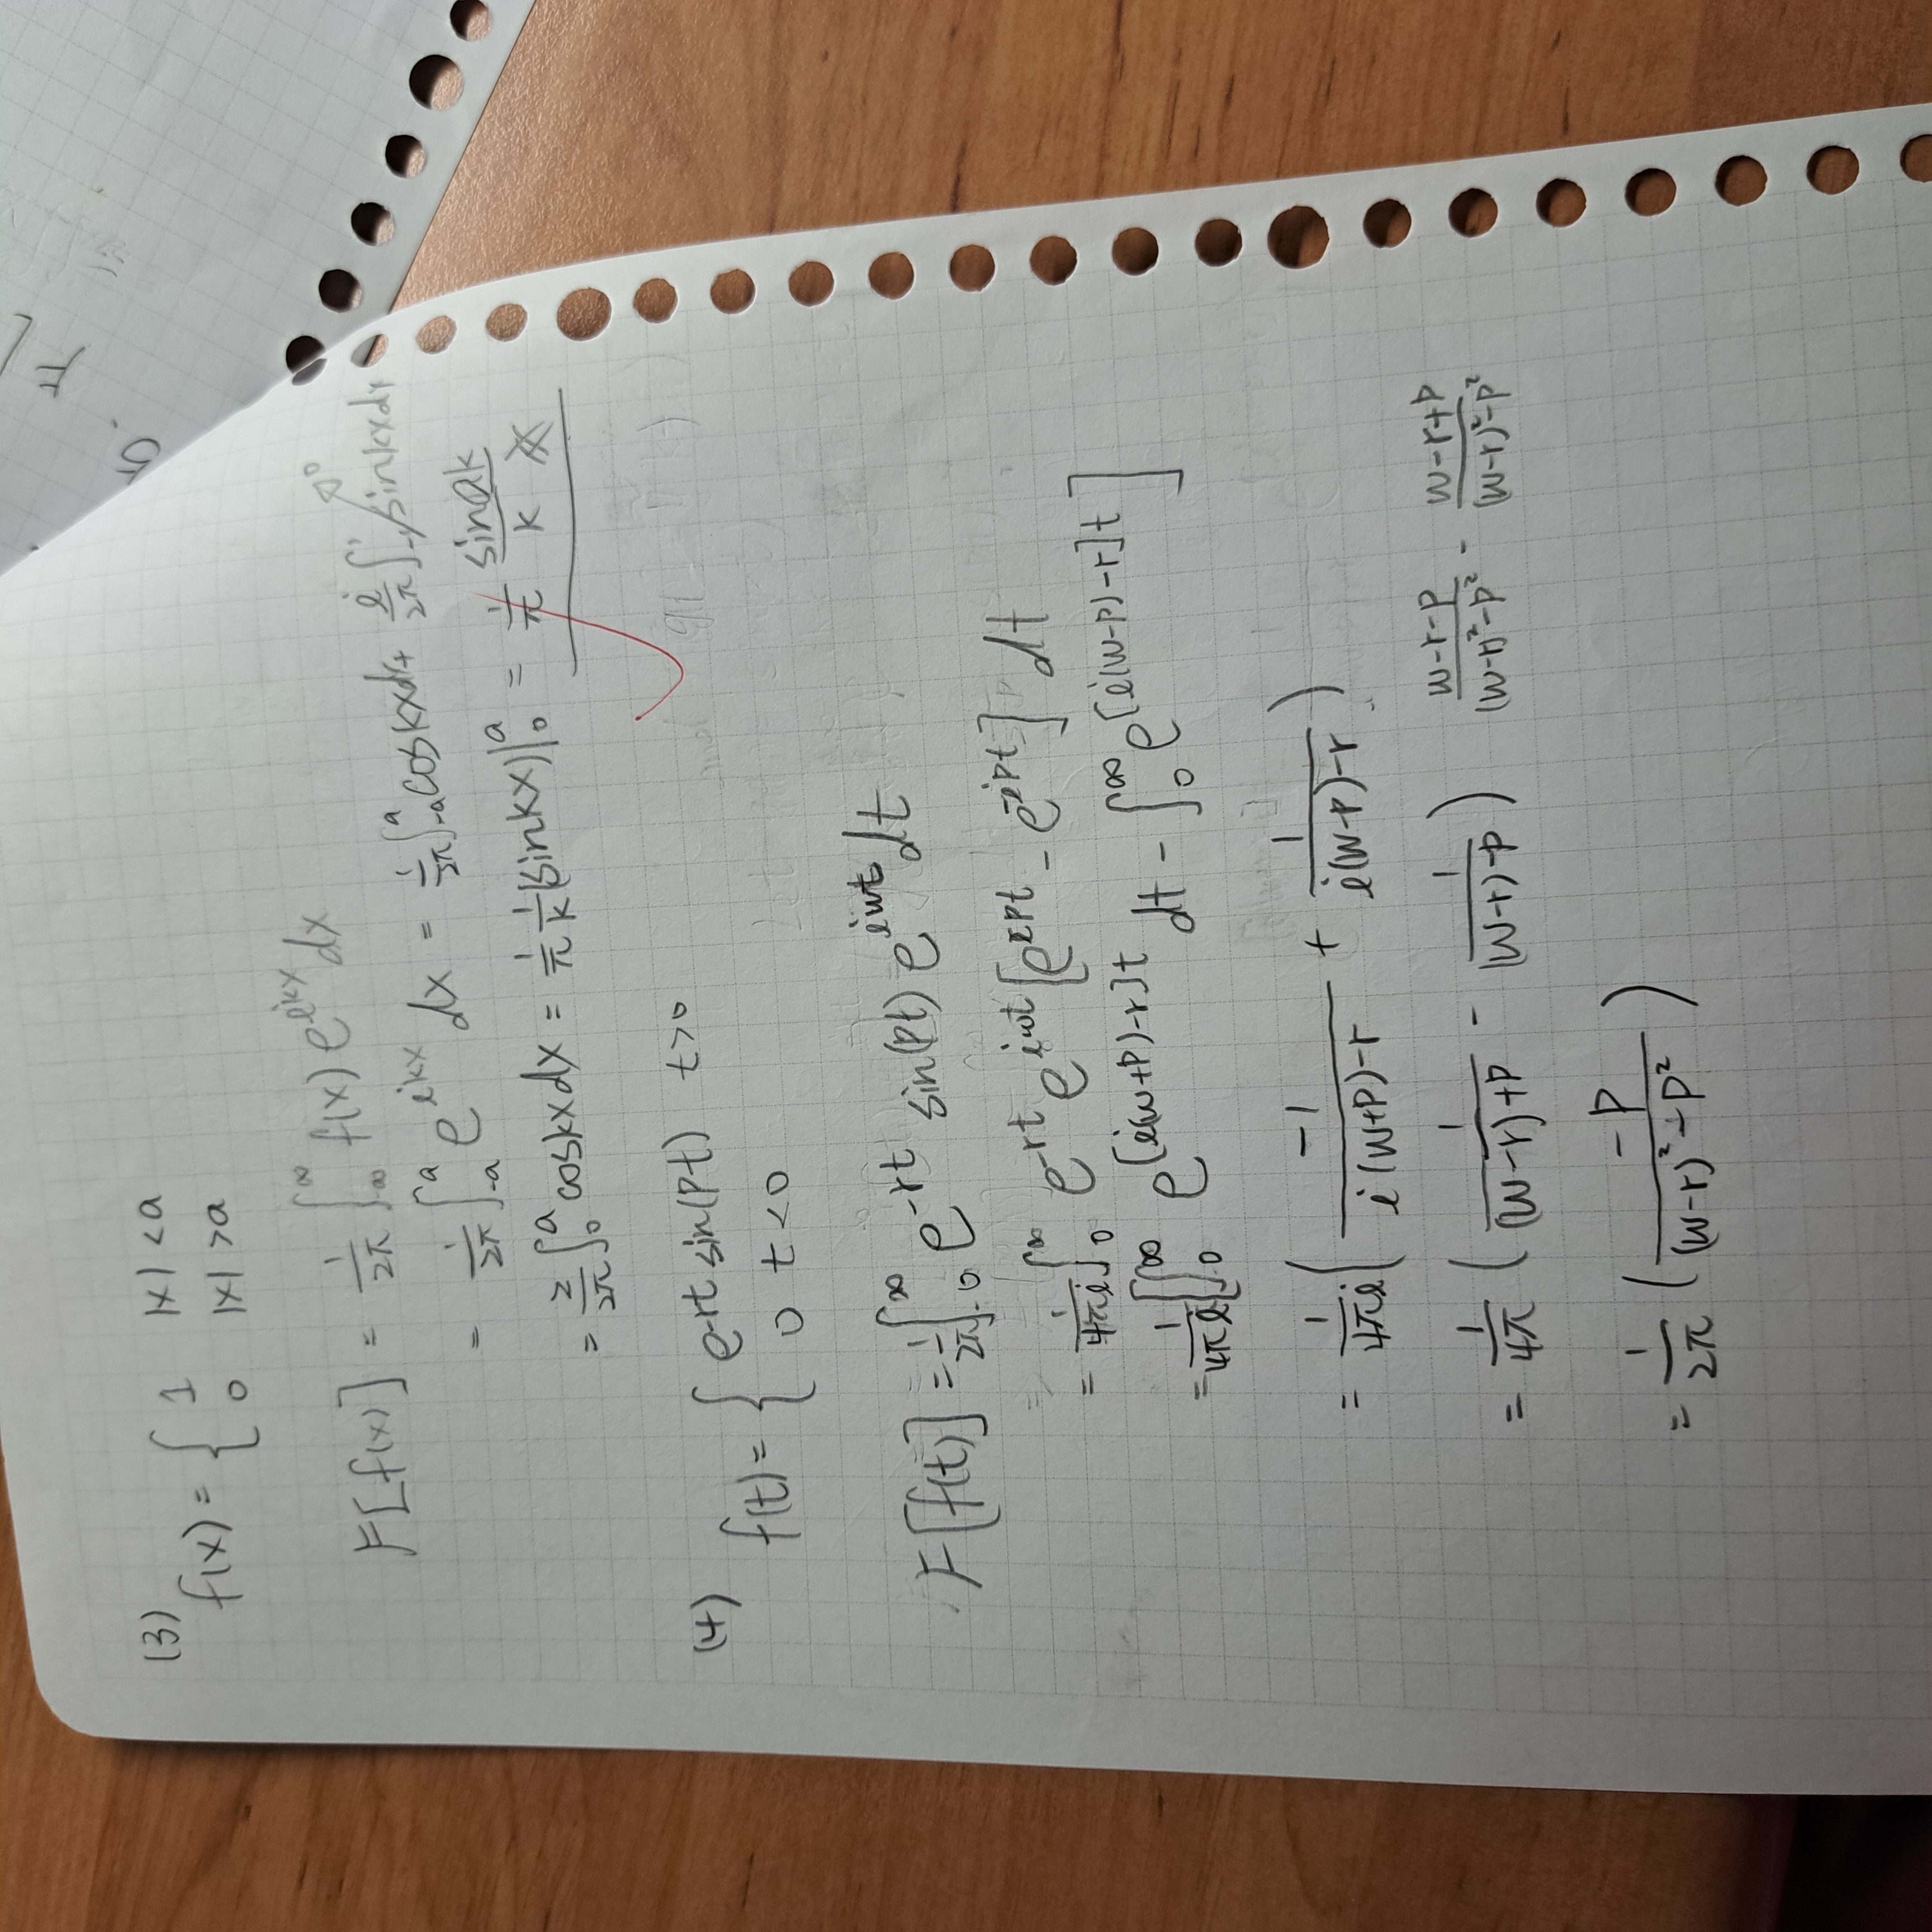 (3)
f(x) = { 1 |x| < a
0 |x| > a
F[f(x)] = 1/2π ∫_-∞^∞ f(x) e^{ikx} dx
= 1/2π ∫_-a^a e^{ikx} dx = 1/2π ∫_-a^a cos kx dx + i/2π ∫_-1^1 sin kx dx → 0
= 2/2π ∫_0^a cos kx dx = 1/π 1/k (sin kx)|_0^a = 1/π sin ak / k
(4)
f(t) = { e^{-rt} sin(pt) t > 0
0 t < 0
F[f(t)] = 1/2π ∫_0^∞ e^{-rt} sin(pt) e^{iwt} dt
= 1/4πi ∫_0^∞ e^{-rt} e^{iwt} [e^{ipt} - e^{-ipt}] dt
= 1/4πi [∫_0^∞ e^{[i(w+p)-r]t} dt - ∫_0^∞ e^{[i(w-p)-r]t}]
= 1/4πi ( -1/(i(w+p)-r) + 1/(i(w-p)-r) )
= 1/4π ( 1/((w-r)+p) - 1/((w-r)-p) ) (w-r-p)/((w-r)²-p²) - (w-r+p)/((w-r)²-p²)
= 1/2π ( -p/((w-r)²-p²) )
5. F[